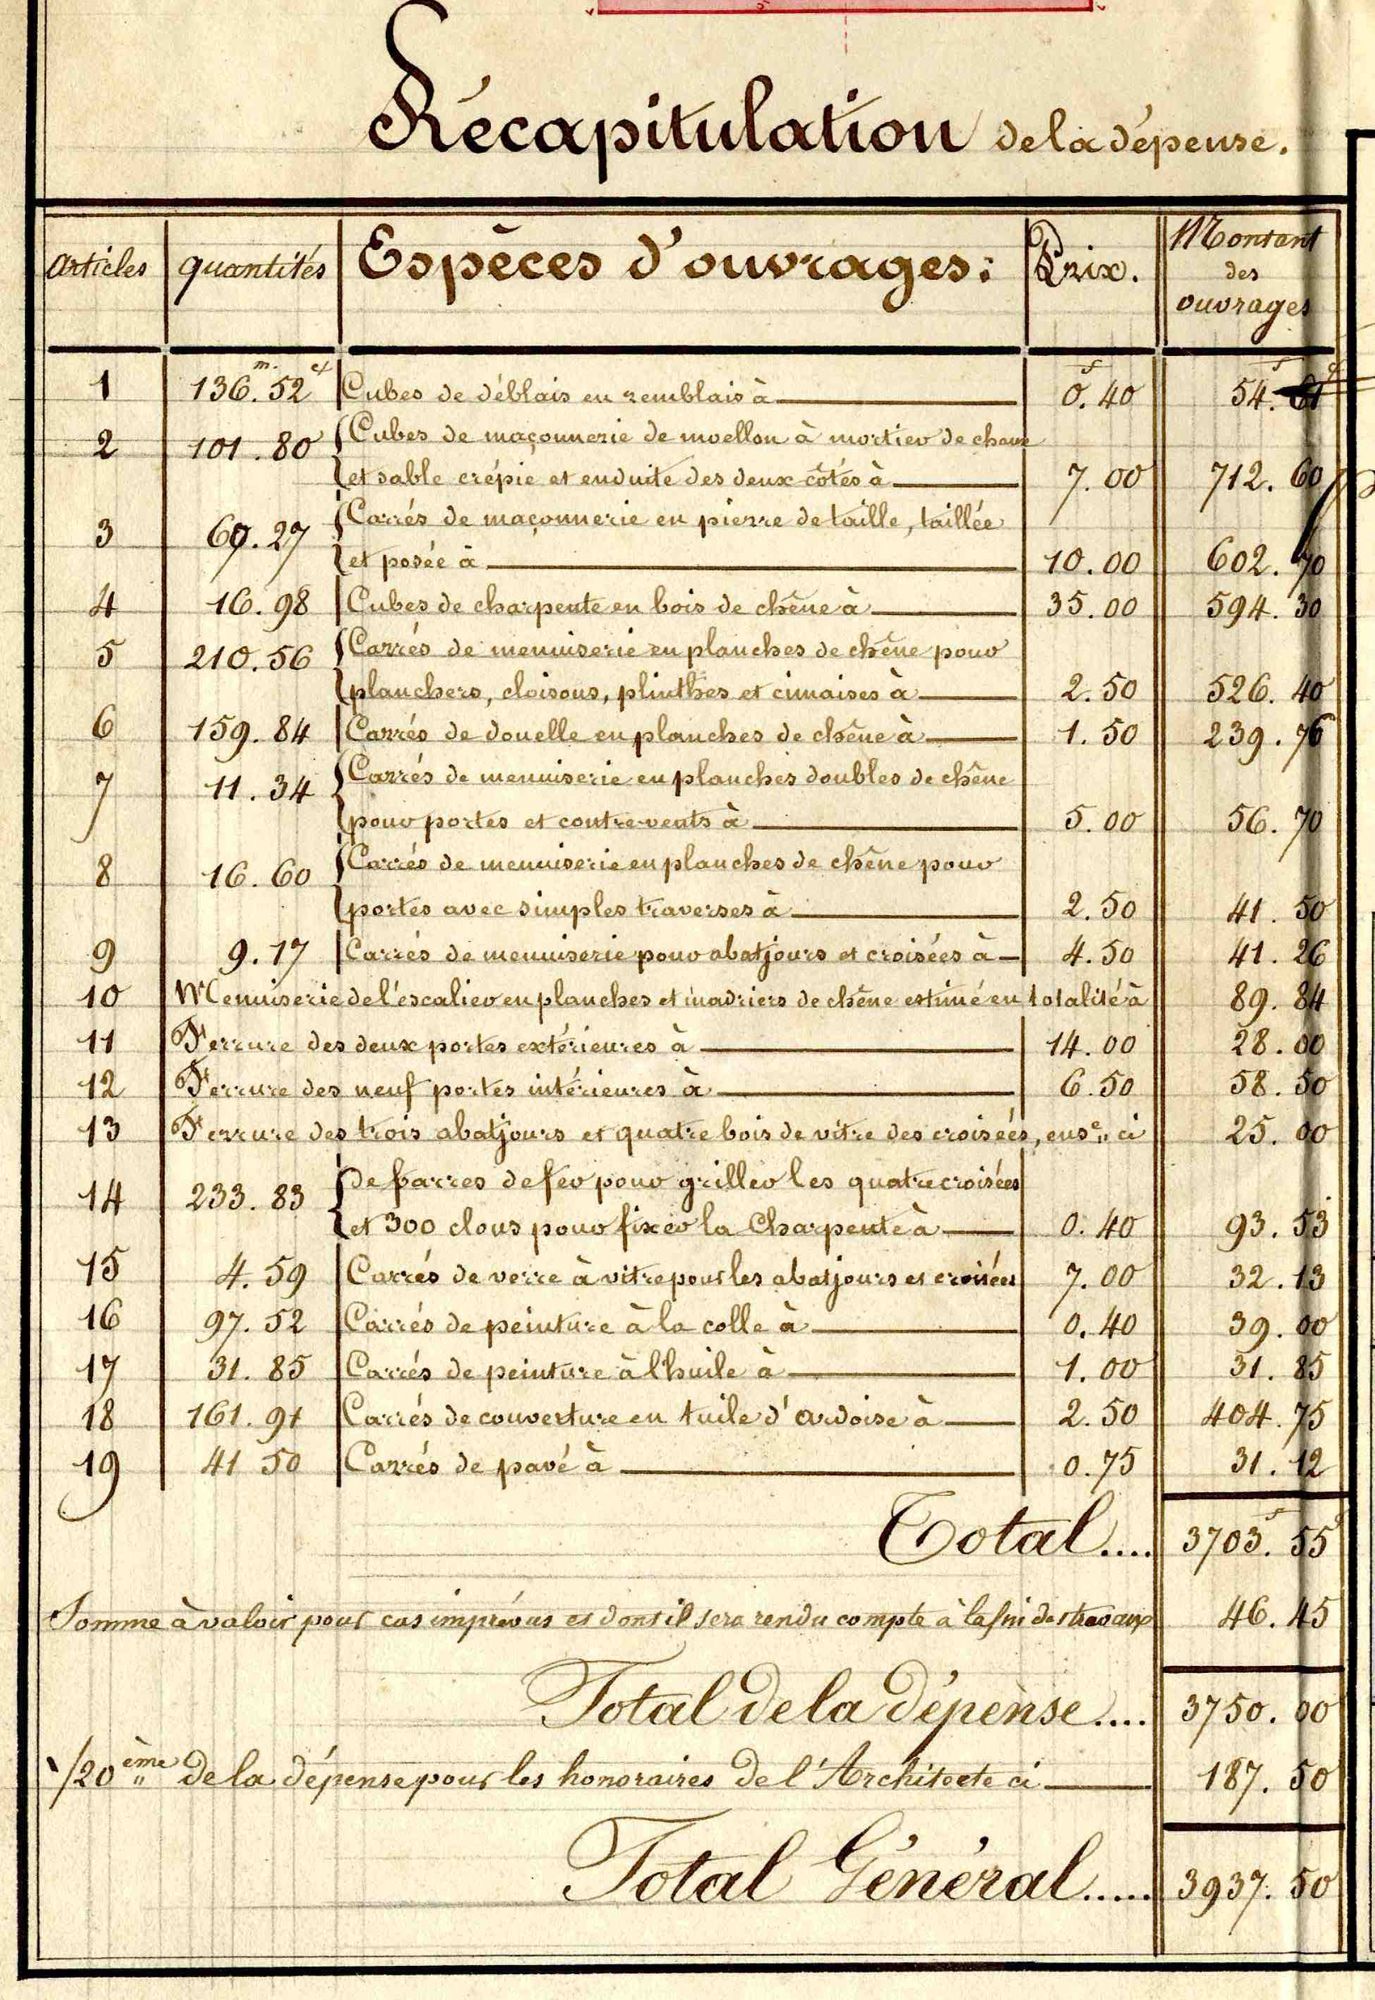 Récapitulation de la dépense.
articles quantités Espèces d'ouvrages: Prix. Montant des ouvrages
1 136.52 Cubes de déblais en remblais à 0.40 54.61
2 101.80 Cubes de maçonnerie de moellon à mortier de chaux
et sable crépie et enduite des deux côtés à 7.00 712.60
3 60.27 Carrés de maçonnerie en pierre de taille, taillée
et posée à 10.00 602.70
4 16.98 Cubes de charpente en bois de chêne à 35.00 594.30
5 210.56 Carrés de menuiserie en planches de chêne pour
planchers, cloisons, plinthes et cimaises à 2.50 526.40
6 159.84 Carrés de douelle en planches de chêne à 1.50 239.76
7 11.34 Carrés de menuiserie en planches doubles de chêne
pour portes et contrevents à 5.00 56.70
8 16.60 Carrés de menuiserie en planches de chêne pour
portes avec simples traverses à 2.50 41.50
9 9.17 Carrés de menuiserie pour abatjours et croisées à 4.50 41.26
10 Menuiserie de l'escalier en planches et madriers de chêne estimé en totalité à 89.84
11 Ferrure des deux portes extérieures à 14.00 28.00
12 Ferrure des neuf portes intérieures à 6.50 58.50
13 Ferrure des trois abatjours et quatre bois de vitre des croisées, ens.e ci 25.00
14 233.83 De barres de fer pour griller les quatre croisées
et 300 clous pour fixer la Charpente à 0.40 93.53
15 4.59 Carrés de verre à vitre pour les abatjours et croisées 7.00 32.13
16 97.52 Carrés de peinture à la colle à 0.40 39.00
17 31.85 Carrés de peinture à l'huile à 1.00 31.85
18 161.91 Carrés de couverture en tuile d'ardoise à 2.50 404.75
19 41 50 Carrés de pavé à 0.75 31.12
Total.... 3703.55
Somme à valoir pour cas imprévus et dont il sera rendu compte à la fin des travaux 46.45
Total de la dépense.... 3750.00
1/20ème de la dépense pour les honoraires de l'Architecte ci 187.50
Total Général..... 3937.50